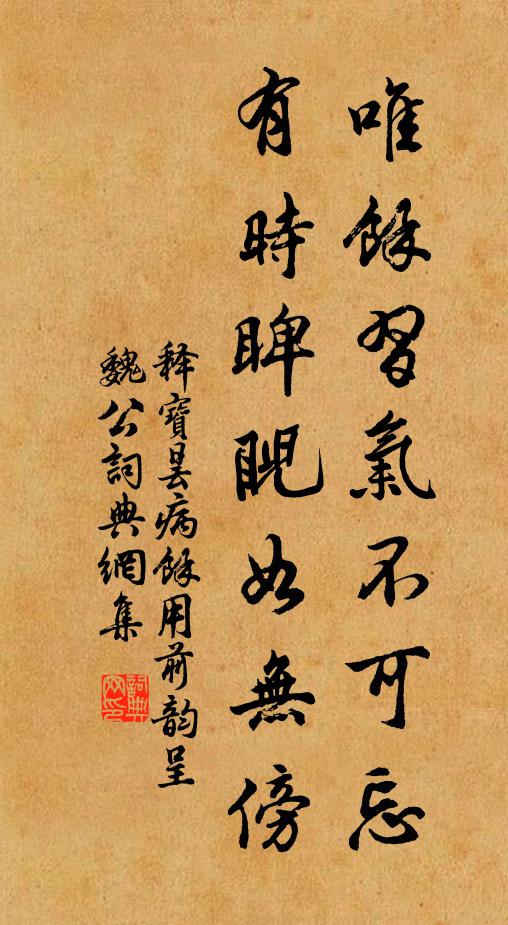 唯餘習氣不可忘
有時睥睨如無傍
釋寶曇病餘用前韵呈
魏公詞典網集
詞典
网印